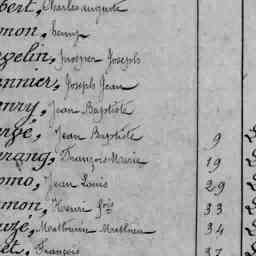 bert, Charles auguste
mon,
gelin, prosper Joseph
nnier, Joseph Jean
enry, Jean Baptiste
Jean Baptiste 9
rang, François Marie 19
omo, Jean Louis 29
mon, Henri 33
uzé, Mathurin Mathieu 34
et, François 37